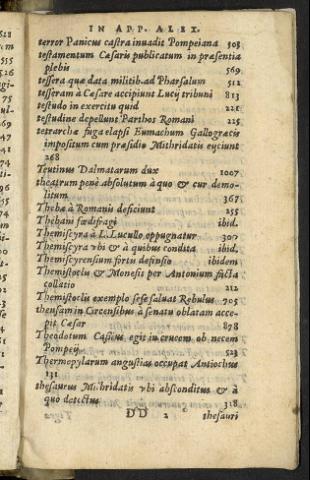 IN APP. ALEX.
terror Panicus castra inuadit Pompeiana 503
testamentum Cæsaris publicatum in præsentia
plebis 569
tessera quæ data militib. ad Pharsalum 512
tesseram à Cæsare accipiunt Lucij tribuni 813
testudo in exercitu quid 221
testudine depellunt Parthos Romani 225
tetrarchæ fuga elapsi Eumachum Gallogræcis
impositum cum præsidio Mithridatis eijciunt
268
Teutinus Dalmatarum dux 1007
theatrum penè absolutum à quo & cur demo-
litum 367
Thebæ à Romanis deficiunt 255
Thebani fœdifragi ibid.
Themiscyra à L. Lucullo oppugnatur 307
Themiscyra vbi & à quibus condita ibid.
Themiscyrensium fortis defensio ibidem
Themistoclis & Monesis per Antonium facta
collatio 212
Themistoclis exemplo sese saluat Rebulus 705
thensam in Circensibus à senatu oblatam acce-
pit Cæsar 878
Theodotum Cassius egit in crucem ob necem
Pompeij 523
Thermopylarum angustias occupat Antiochus
131
thesaurus Mithridatis vbi absconditus & à
quo detectus 318
DD 2 thesauri